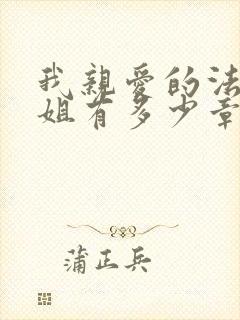 我親愛的法
姐有多少章
蒲正兵